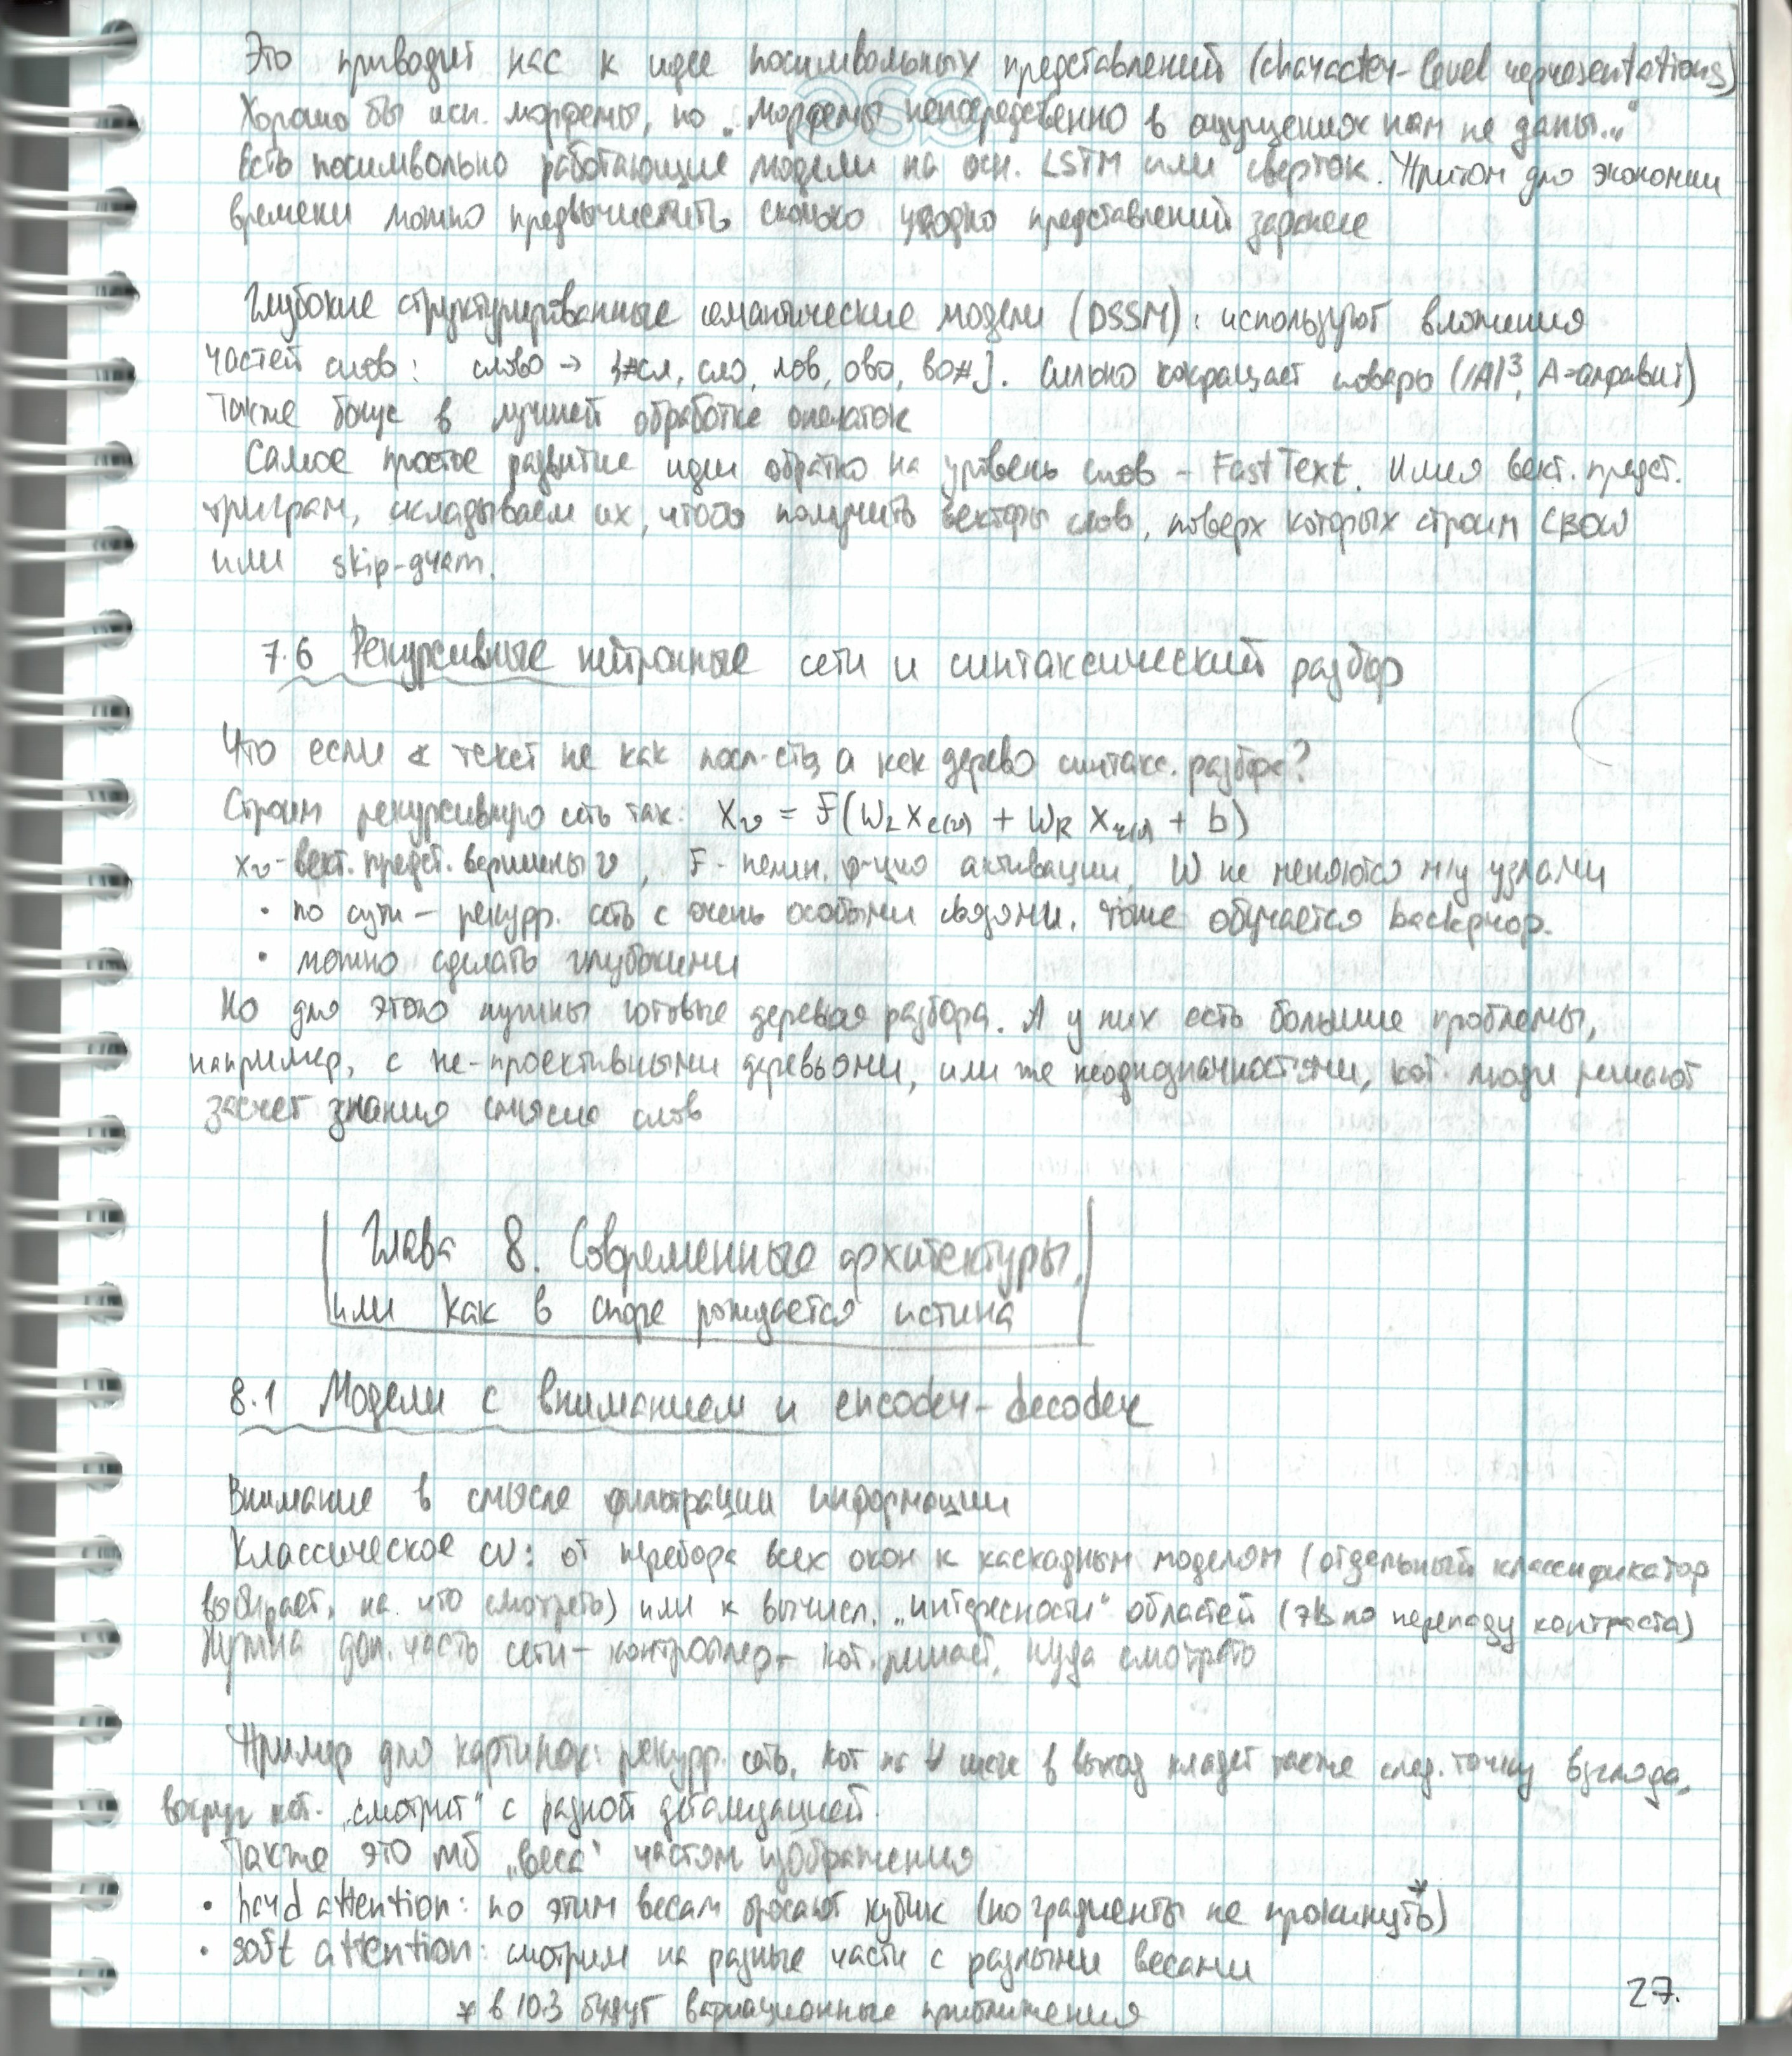 Это приводит нас к идее посимвольных представлений (character-level representations)
Хорошо бы исп. морфемы, но „морфемы непосредственно в ощущениях нам не даны..."
Есть посимвольно работающие модели на осн. LSTM или сверток. Притом для экономии
времени можно предвычислить сколько угодно представлений заранее
Глубокие структурированные семантические модели (DSSM): используют вложения
частей слов: слово → {#сл, сло, лов, ово, во#}. Сильно сокращает словарь (|A|³, A=алфавит)
Также бонус в лучшей обработке опечаток
Самое простое развитие идеи обратно на уровень слов – FastText. Имея вект. предст.
триграм, складываем их, чтобы получить векторы слов, поверх которых строим CBOW
или skip-gram.
7.6 Рекурсивные нейронные сети и синтаксический разбор
Что если текст не как посл-сть, а как дерево синтакс. разбора?
Строим рекурсивную сеть так: x_v = F(W_L x_{l(v)} + W_R x_{r(v)} + b)
x_v - вект. предст. вершины v, F - нелин. ф-ция активации, W не меняются м/у узлами
• по сути – рекурр. сеть с очень особыми связями. Тоже обучается backprop.
• можно сделать глубокими
Но для этого нужны готовые деревья разбора. А у них есть большие проблемы,
например, с не-проективными деревьями, или же неоднозначностями, кот. люди решают
засчет знания смысла слов
Глава 8. Современные архитектуры,
или как в споре рождается истина
8.1 Модели с вниманием и encoder-decoder
Внимание в смысле фильтрации информации
Классическое CV: от перебора всех окон к каскадным моделям (отдельный классификатор
выбирает, на что смотреть) или к вычисл. „интересности" областей (по перепаду контраста)
Нужна доп. часть сети – контроллер – кот. решает, куда смотреть
Пример для картинок: рекурр. сеть, кот на ∀ шаге в выход кладет также след. точку взгляда,
вокруг кот. „смотрит" с разной детализацией.
Также это мб „веса" частям изображения
• hard attention: по этим весам бросают кубик (но градиенты не прокинуть*)
• soft attention: смотрим на разные части с разными весами
* в 10.3 будут вариационные приближения
27.